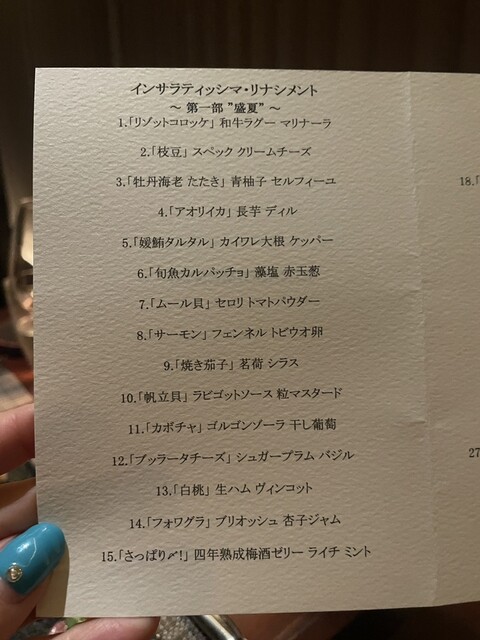 インサラティッシマ・リナシメント
～ 第一部 "盛夏" ～
1.「リゾットコロッケ」 和牛ラグー マリナーラ
2.「枝豆」 スペック クリームチーズ
3.「牡丹海老 たたき」 青柚子 セルフィーユ
4.「アオリイカ」 長芋 ディル
5.「媛鮪タルタル」 カイワレ大根 ケッパー
6.「旬魚カルパッチョ」 藻塩 赤玉葱
7.「ムール貝」 セロリ トマトパウダー
8.「サーモン」 フェンネル トビウオ卵
9.「焼き茄子」 茗荷 シラス
10.「帆立貝」 ラビゴットソース 粒マスタード
11.「カボチャ」 ゴルゴンゾーラ 干し葡萄
12.「ブッラータチーズ」 シュガープラム バジル
13.「白桃」 生ハム ヴィンコット
14.「フォワグラ」 ブリオッシュ 杏子ジャム
15.「さっぱり〆!」 四年熟成梅酒ゼリー ライチ ミント
18.「
27